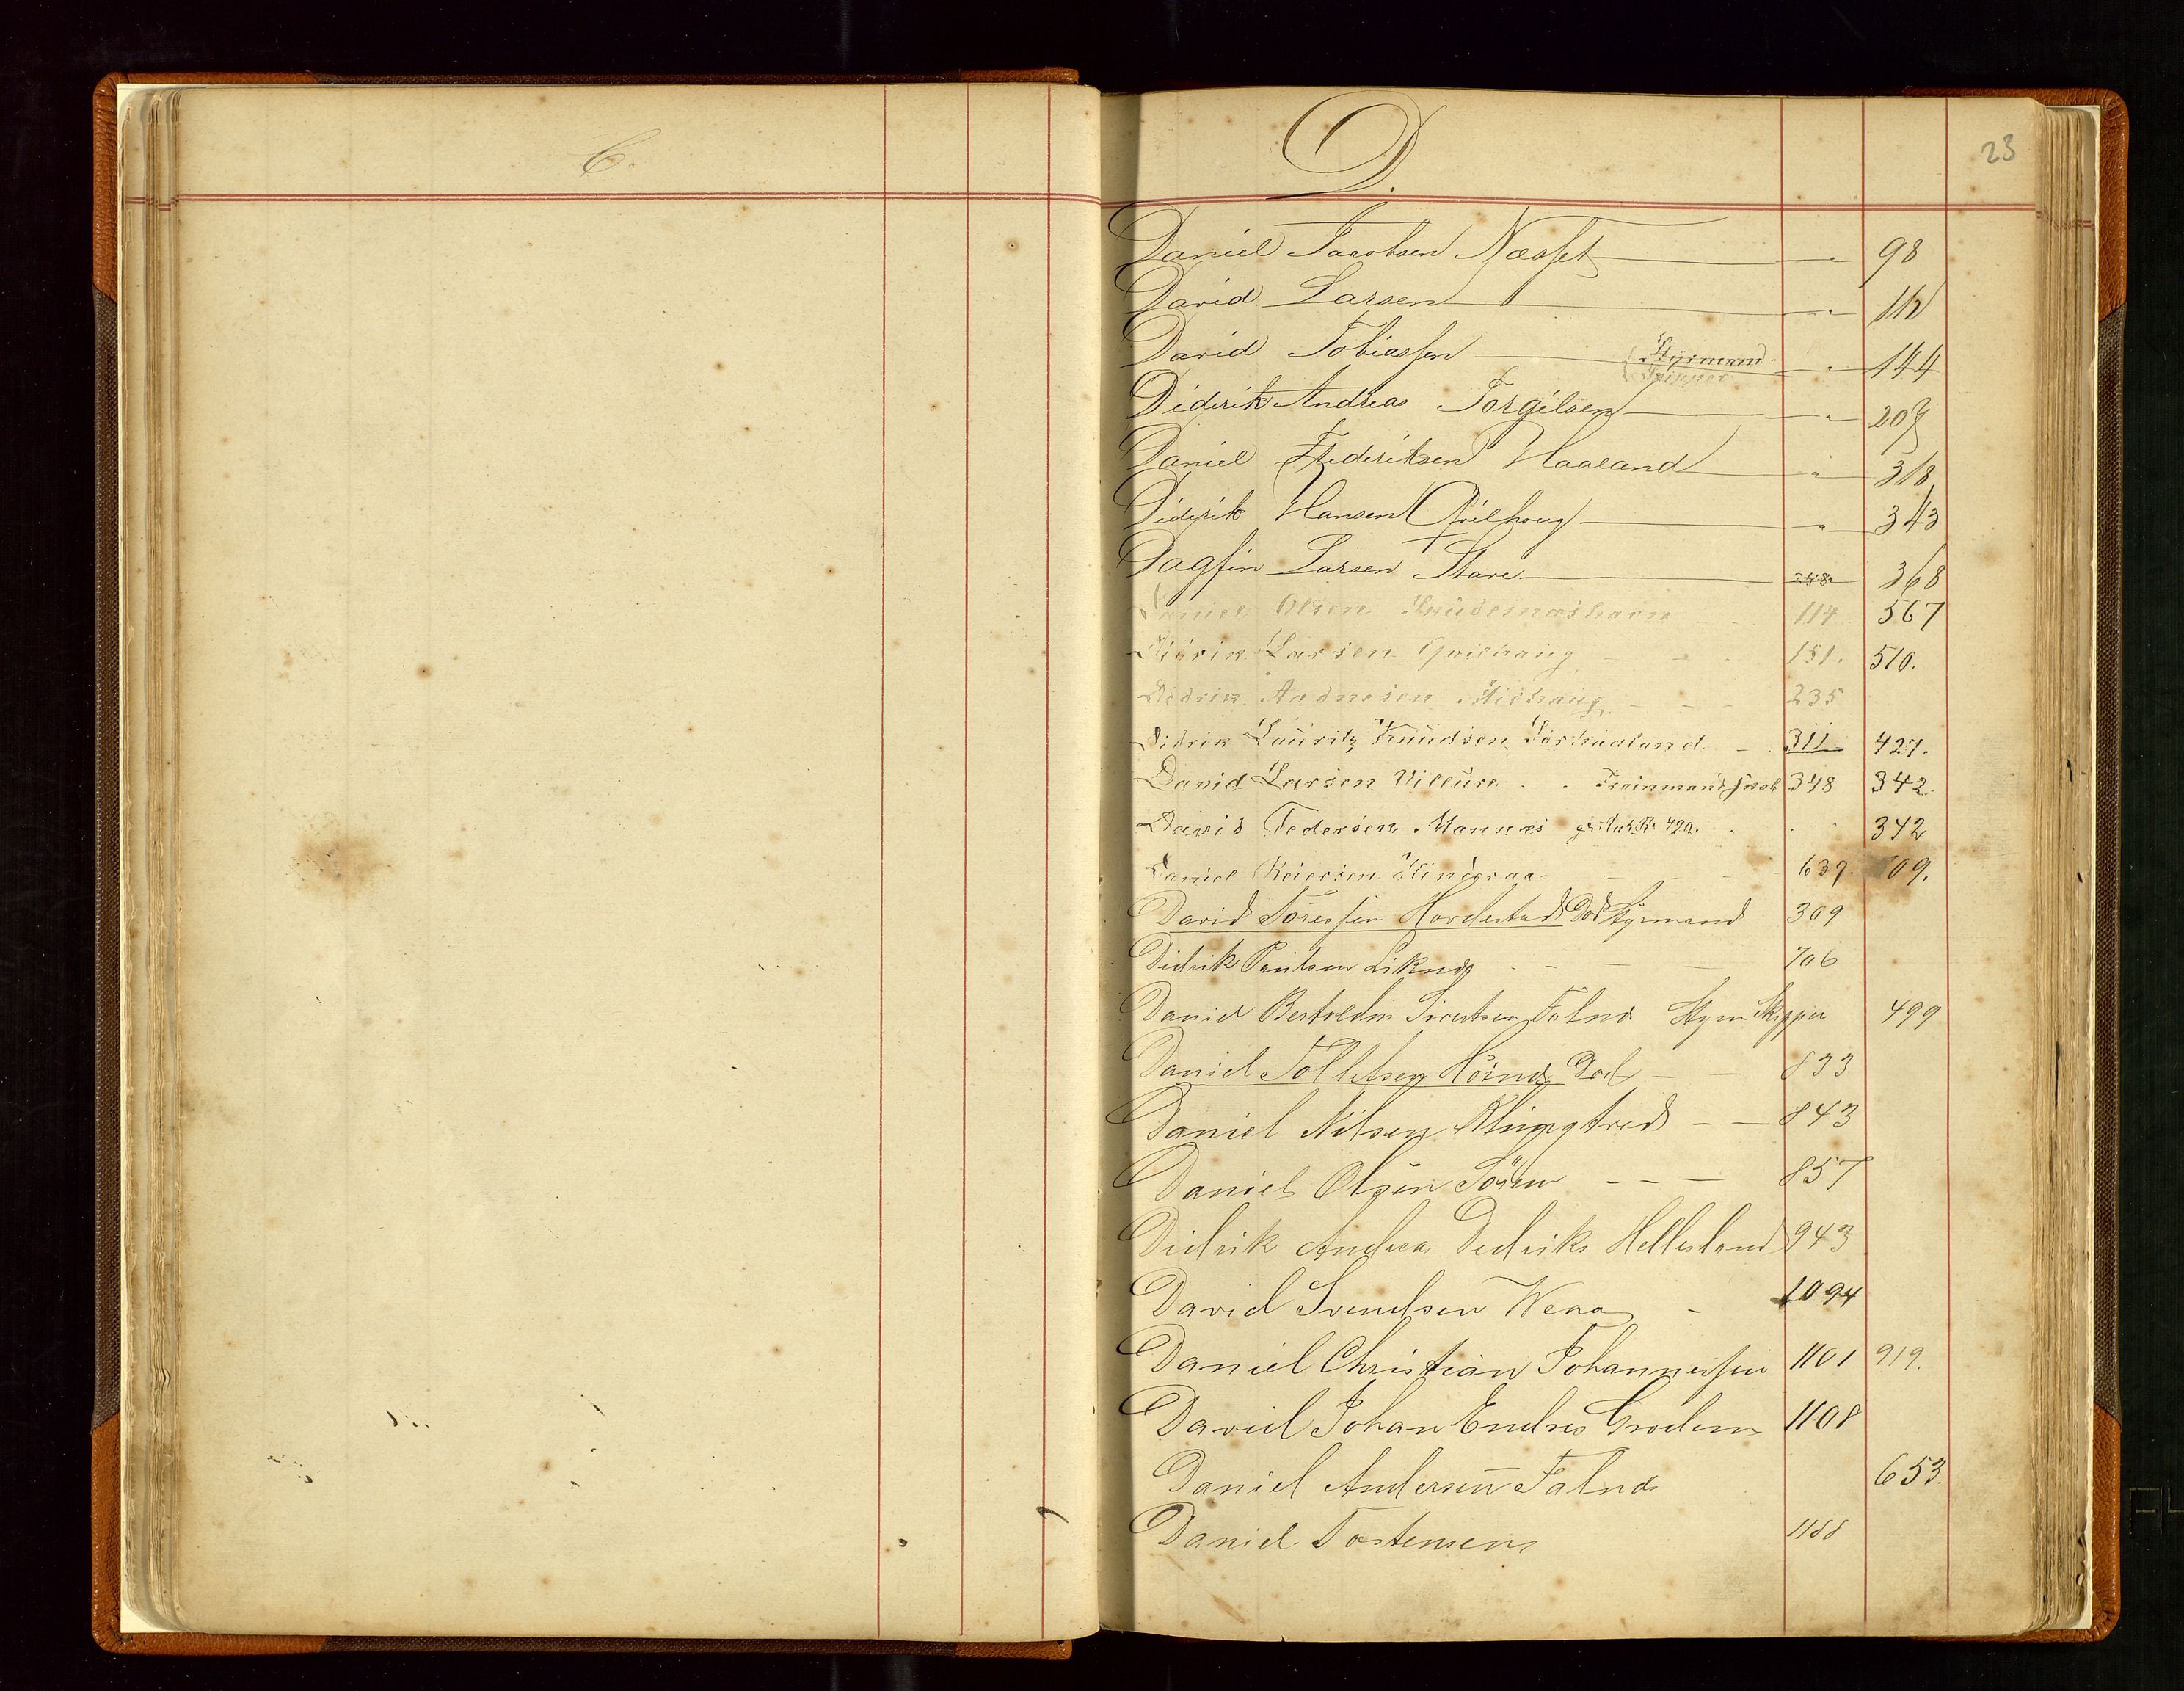 C.
D.
23
Daniel Jacobsen Næsset " 98
David Larsen " 112
David Tobiassen Styrmand Skipper " 144
Diderik Andreas Torgilsen " 207
Daniel Frederiksen Haaland " 318
Diderik Hansen Qvilhoug " 343
Dagfin Larsen Stave 248 368
Daniel Olsen Skudesneshavn 114 567
Didrik Larsen Qvilhaug 151. 510.
Didrik Aadnesen Mishaug 235
Didrik Lauritz Knudsen Sørhaaland 311 427.
David Larsen Villure 348 342.
David Pedersen Mannes 342
Daniel Reiersen Hinderaa 637. 09.
David Toressen Hovdestad Død Styrmand 309
Didrik Paulsen Liknes 706
Daniel Bertoldin Sivertsen Falnes Styrm Skipper 499
Daniel Tollefsen Høines Død 833
Daniel Nilsen Klungtved 843
Daniel Olsen 857
Didrik Andrea Dedriks Hellesland 943
David Svendsen Weaa 1094
Daniel Christian Johannessen 1101 919.
David Johan Endres Grodem 1108
Daniel Andersen Falnes 653.
Daniel Tostensen 1188